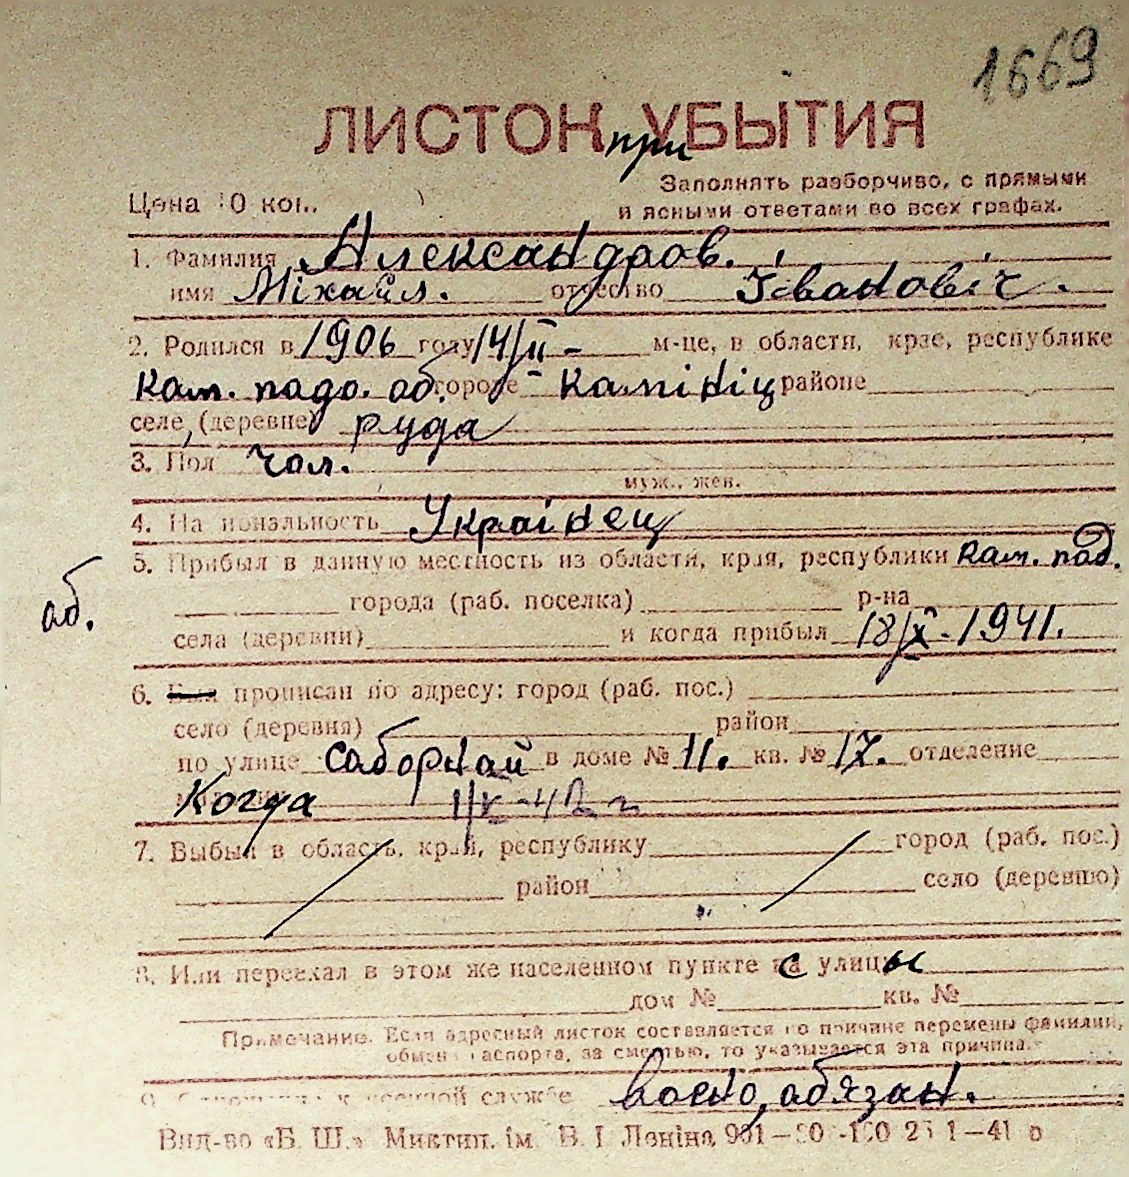 1669
ЛИСТОК при УБЫТИЯ
Заполнять разборчиво, с прямыми
Цена 10 коп.
и ясными ответами во всех графах.
1. Фамилия Александров.
имя Міхайл. отчество Івановіч.
2. Родился в 1906 году 14/II - м-це, в области, крае, республике
Кам. падо. об. городе - Камініц районе
селе, (деревне) руда
3. Пол чол.
муж., жен.
4. Национальность Українец
5. Прибыл в данную местность из области, края, республики Кам. под.
об. города (раб. поселка) р-на
села (деревни) и когда прибыл 18/X - 1941.
6. Был прописан по адресу: город (раб. пос.)
село (деревня) район
по улице саборнай в доме № 11. кв. № 17. отделение
Когда
7. Выбыл в область, край, республику город (раб. пос.)
район село (деревню)
8. Или переехал в этом же населенном пункте с улицы
дом № кв. №
Примечание. Если адресный листок составляется по причине перемены фамилии,
обмен паспорта, за смертью, то указывается эта причина.
9. Отношение к военной службе воено, абязан.
Вид-во «Б. Ш.» Миктип. ім. В. І Леніна